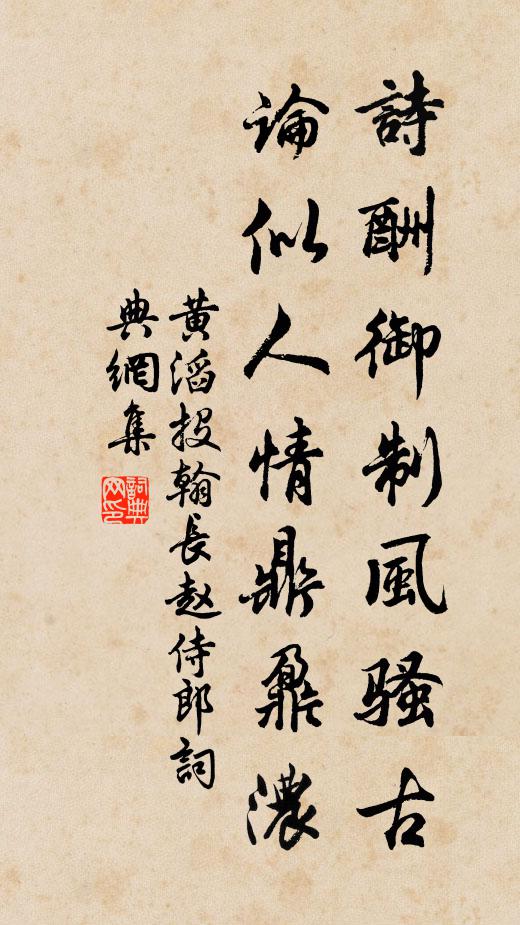 詩酬御制風騷古
論似人情鼎鼐濃
黃滔投翰長赵侍郎詞
典網集
詞典網印